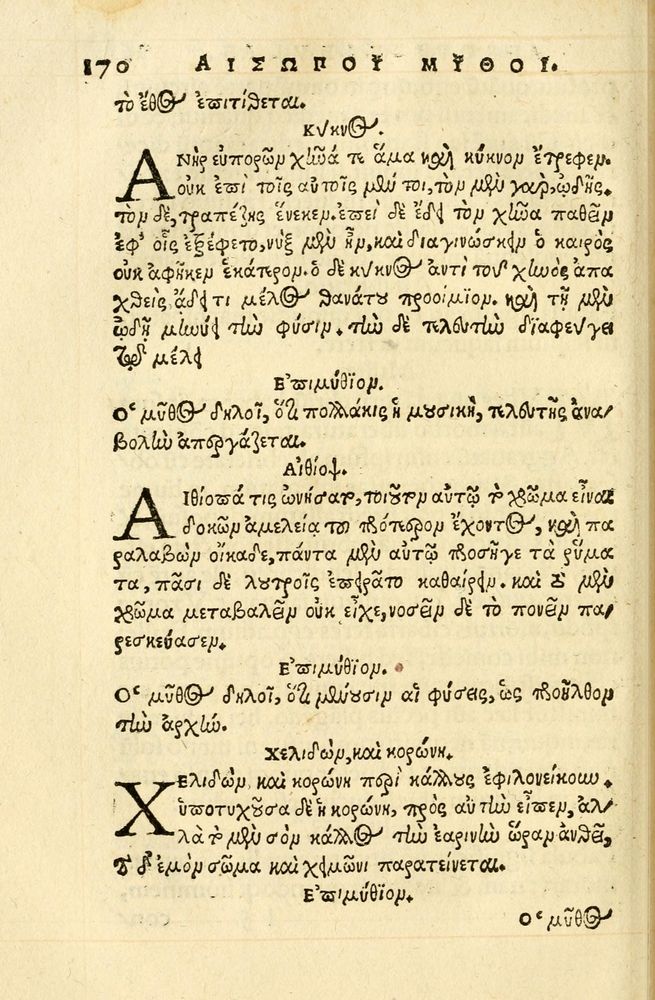 170 ΑΙΣΩΠΟΥ ΜΥΘΟΙ.
το ἔθος ἐπιτίθεται.
Κύκνος.
ΑΝὴρ εὐπορῶν χῆνά τε ἅμα καὶ κύκνον ἔτρεφεν.
οὐκ ἐπὶ τοῖς αὐτοῖς μέν τοι, τὸν μὲν γὰρ, ᾠδῆς.
τὸν δὲ, τραπέζης ἕνεκεν. ἐπεὶ δὲ ἔδει τὸν χῆνα παθεῖν
ἐφ' οἷς ἐξέφετο, νὺξ μὲν ἦν, καὶ διαγινώσκειν ὁ καιρὸς
οὐκ ἀφῆκεν ἑκάτερον. ὁ δὲ κύκνος ἀντὶ τοῦ χηνὸς ἀπα
χθεὶς, ᾄδει τι μέλος θανάτου προοίμιον. καὶ τῇ μὲν
ᾠδῇ μηνύει τὴν φύσιν. τὴν δὲ τελευτὴν διαφεύγει
τῷ μέλει
Ἐπιμύθιον.
Ὁ μῦθος δηλοῖ, ὅτι πολλάκις ἡ μουσικὴ, τελευτῆς ἀνα/
βολὴν ἀπεργάζεται.
Αἰθίοψ.
ΑΙθίοπά τις ὠνήσατο, τοιοῦτον αὐτῷ τὸ χρῶμα εἶναι
δοκῶν ἀμελείᾳ τοῦ πρότερον ἔχοντος, καὶ πα
ραλαβὼν οἴκαδε, πάντα μὲν αὐτῷ προσῆγε τὰ ῥύμα
τα, πᾶσι δὲ λουτροῖς ἐπειρᾶτο καθαίρειν. καὶ τὸ μὲν
χρῶμα μεταβαλεῖν οὐκ εἶχε, νοσεῖν δὲ τὸ πονεῖν πα/
ρεσκεύασεν.
Ἐπιμύθιον.
Ὁ μῦθος δηλοῖ, ὅτι μένουσιν αἱ φύσεις, ὡς προῆλθον
τὴν ἀρχήν.
Χελιδὼν, καὶ κορώνη.
ΧΕλιδὼν, καὶ κορώνη περὶ κάλλους ἐφιλονείκουν.
ὑποτυχοῦσα δὲ ἡ κορώνη, πρὸς αὐτὴν εἶπεν, ἀλ/
λὰ τὸ μὲν σὸν κάλλος τὴν ἐαρινὴν ὥραν ἀνθεῖ,
τὸ δ' ἐμὸν σῶμα καὶ χειμῶνι παρατείνεται.
Ἐπιμύθιον.
Ὁ μῦθος